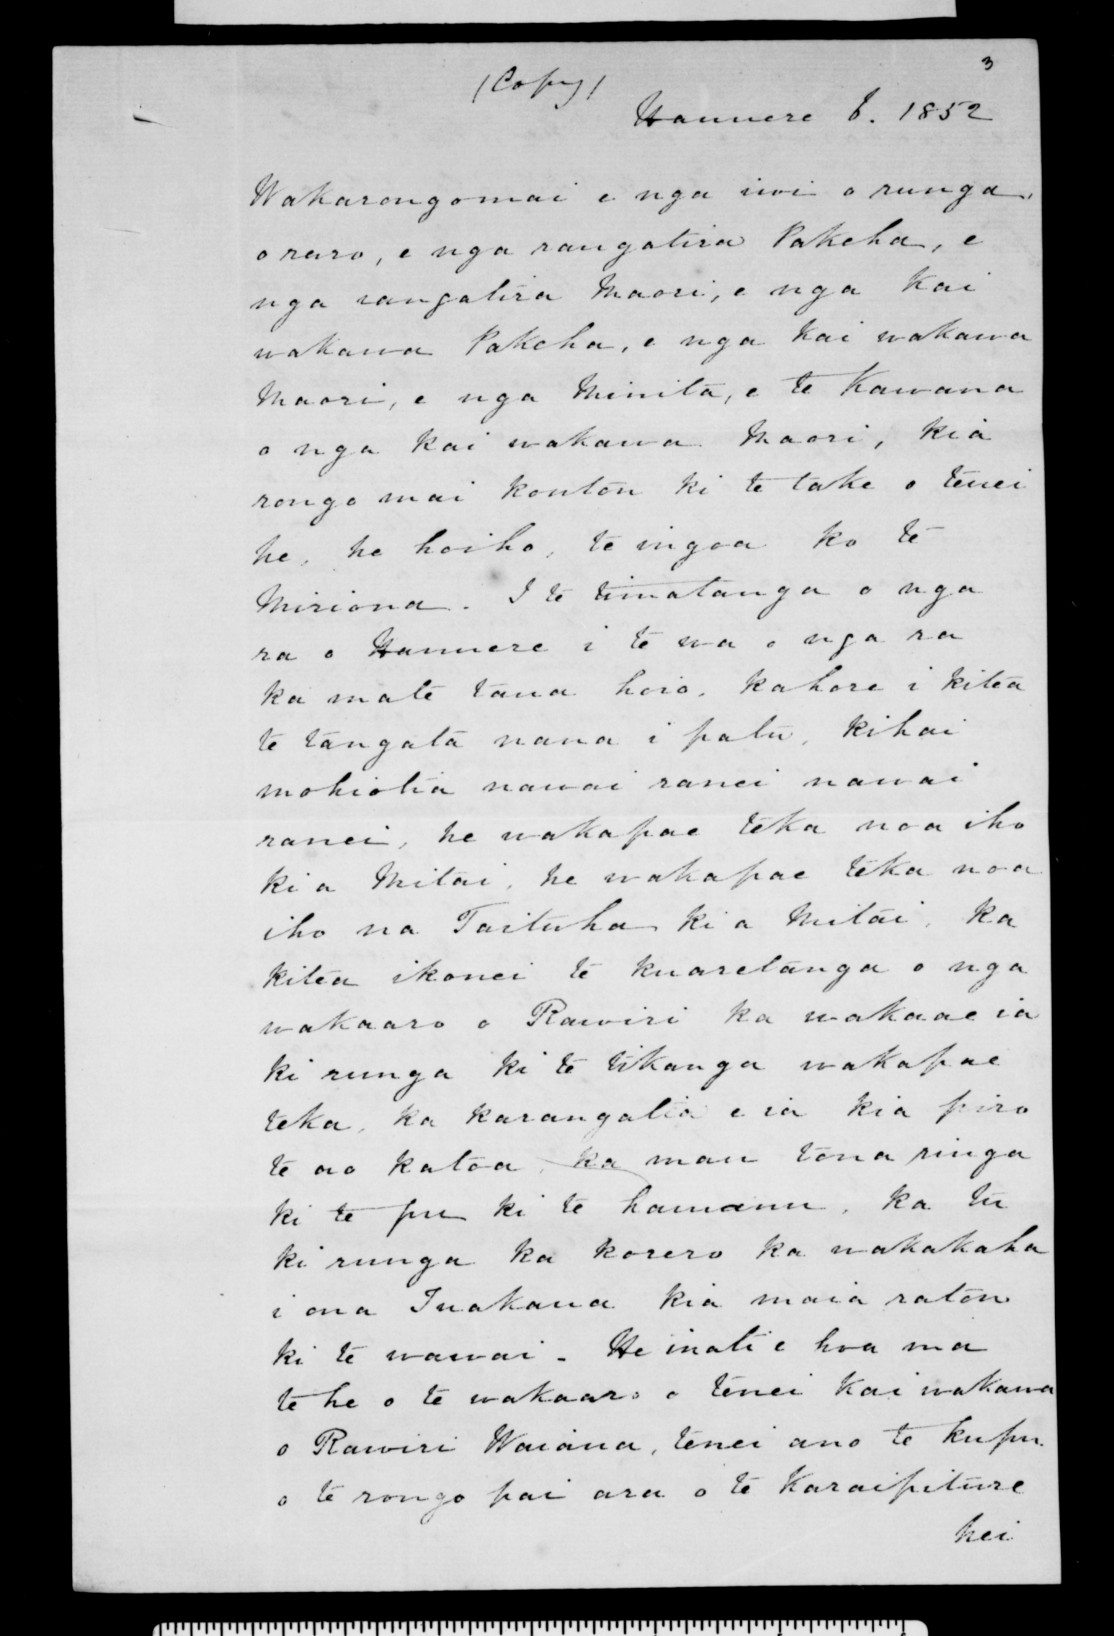 3
(Copy)
Hanuere 6. 1852
Wakarongomai e nga iwi o runga,
o raro, e nga rangatira Pakeha, e
nga rangatira Maori, e nga Kai
wakawa Pakeha, e nga Kai wakawa
Maori, e nga Minita, e te Kawana
o nga Kai wakawa Maori, kia
rongo mai koutou ki te take o tenei
he, he hoiho, te ingoa ko te
Miriona. I te timatanga o nga
ra o Hanuere i te wa o nga ra
ka mate taua hoio. kahore i kitea
te tangata nana i patu, kihai
mohiotia nawai ranei nawai
ranei, he wakapae teka noa iho
ki a Mitai, he wakapae teka noa
iho na Taituha ki a Mitai. Ka
kitea ikonei te kuaretanga o nga
wakaaro o Rawiri ka wakaae ia
ki runga ki te tikanga wakapae
teka, ka karangatia e ia kia piro
te ao katoa, ka mau tona ringa
ki te pu ki te hamanu, ka tu
ki runga ka korero ka wakakaha
i ona Tuakana kia maia ratou
ki te wawai - He inati e hoa ma
te he o te wakaaro o tenei Kai wakawa
o Rawiri Waiana, tenei ano te kupu
o te rongo pai ara o te Karaipiture
kei